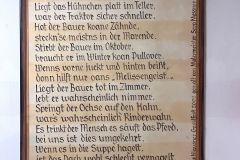 Liegt das Hühnchen platt im Teller,
war der Traktor sicher schneller.
Hot der Bauer koane Zähnde,
steckn'se meistns in der Marende.
Stirbt der Bauer im Oktober,
braucht er im Winter koan Pullover.
Wenns vorne juckt und hinten beißt,
donn hilft nur oans „Melissengeist“.
Liegt der Bauer tot im Zimmer,
lebt er wahrscheinlich nimmer.
Springt der Ochse auf den Hahn,
wars wahrscheinlich Rinderwahn.
Es trinkt der Mensch es säuft das Pferd,
bei uns ist dies umgekehrt.
Wenn es in die Suppe hagelt,
ist das Dach wohl schlecht vernagelt.